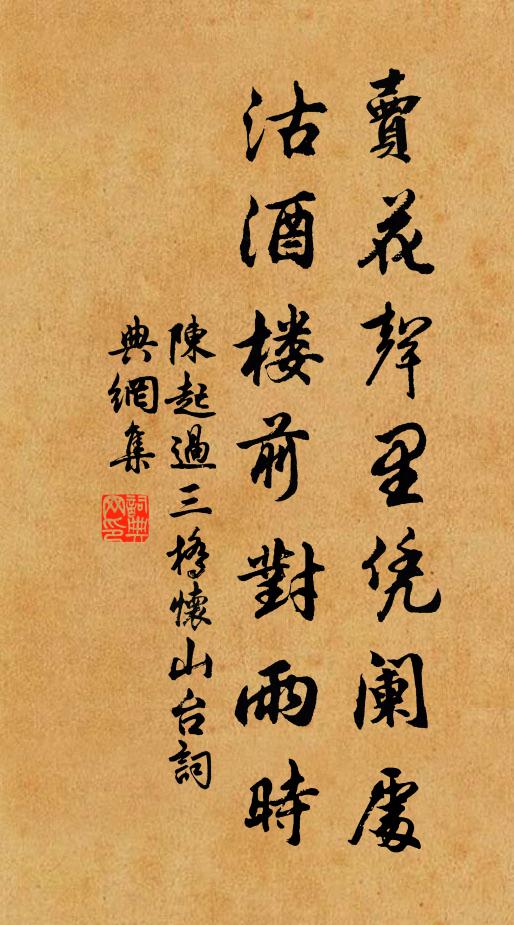 賣花聲里凭阑處
沽酒楼前對雨時
陳起過三橋懷山台詞
典網集
詞典網印